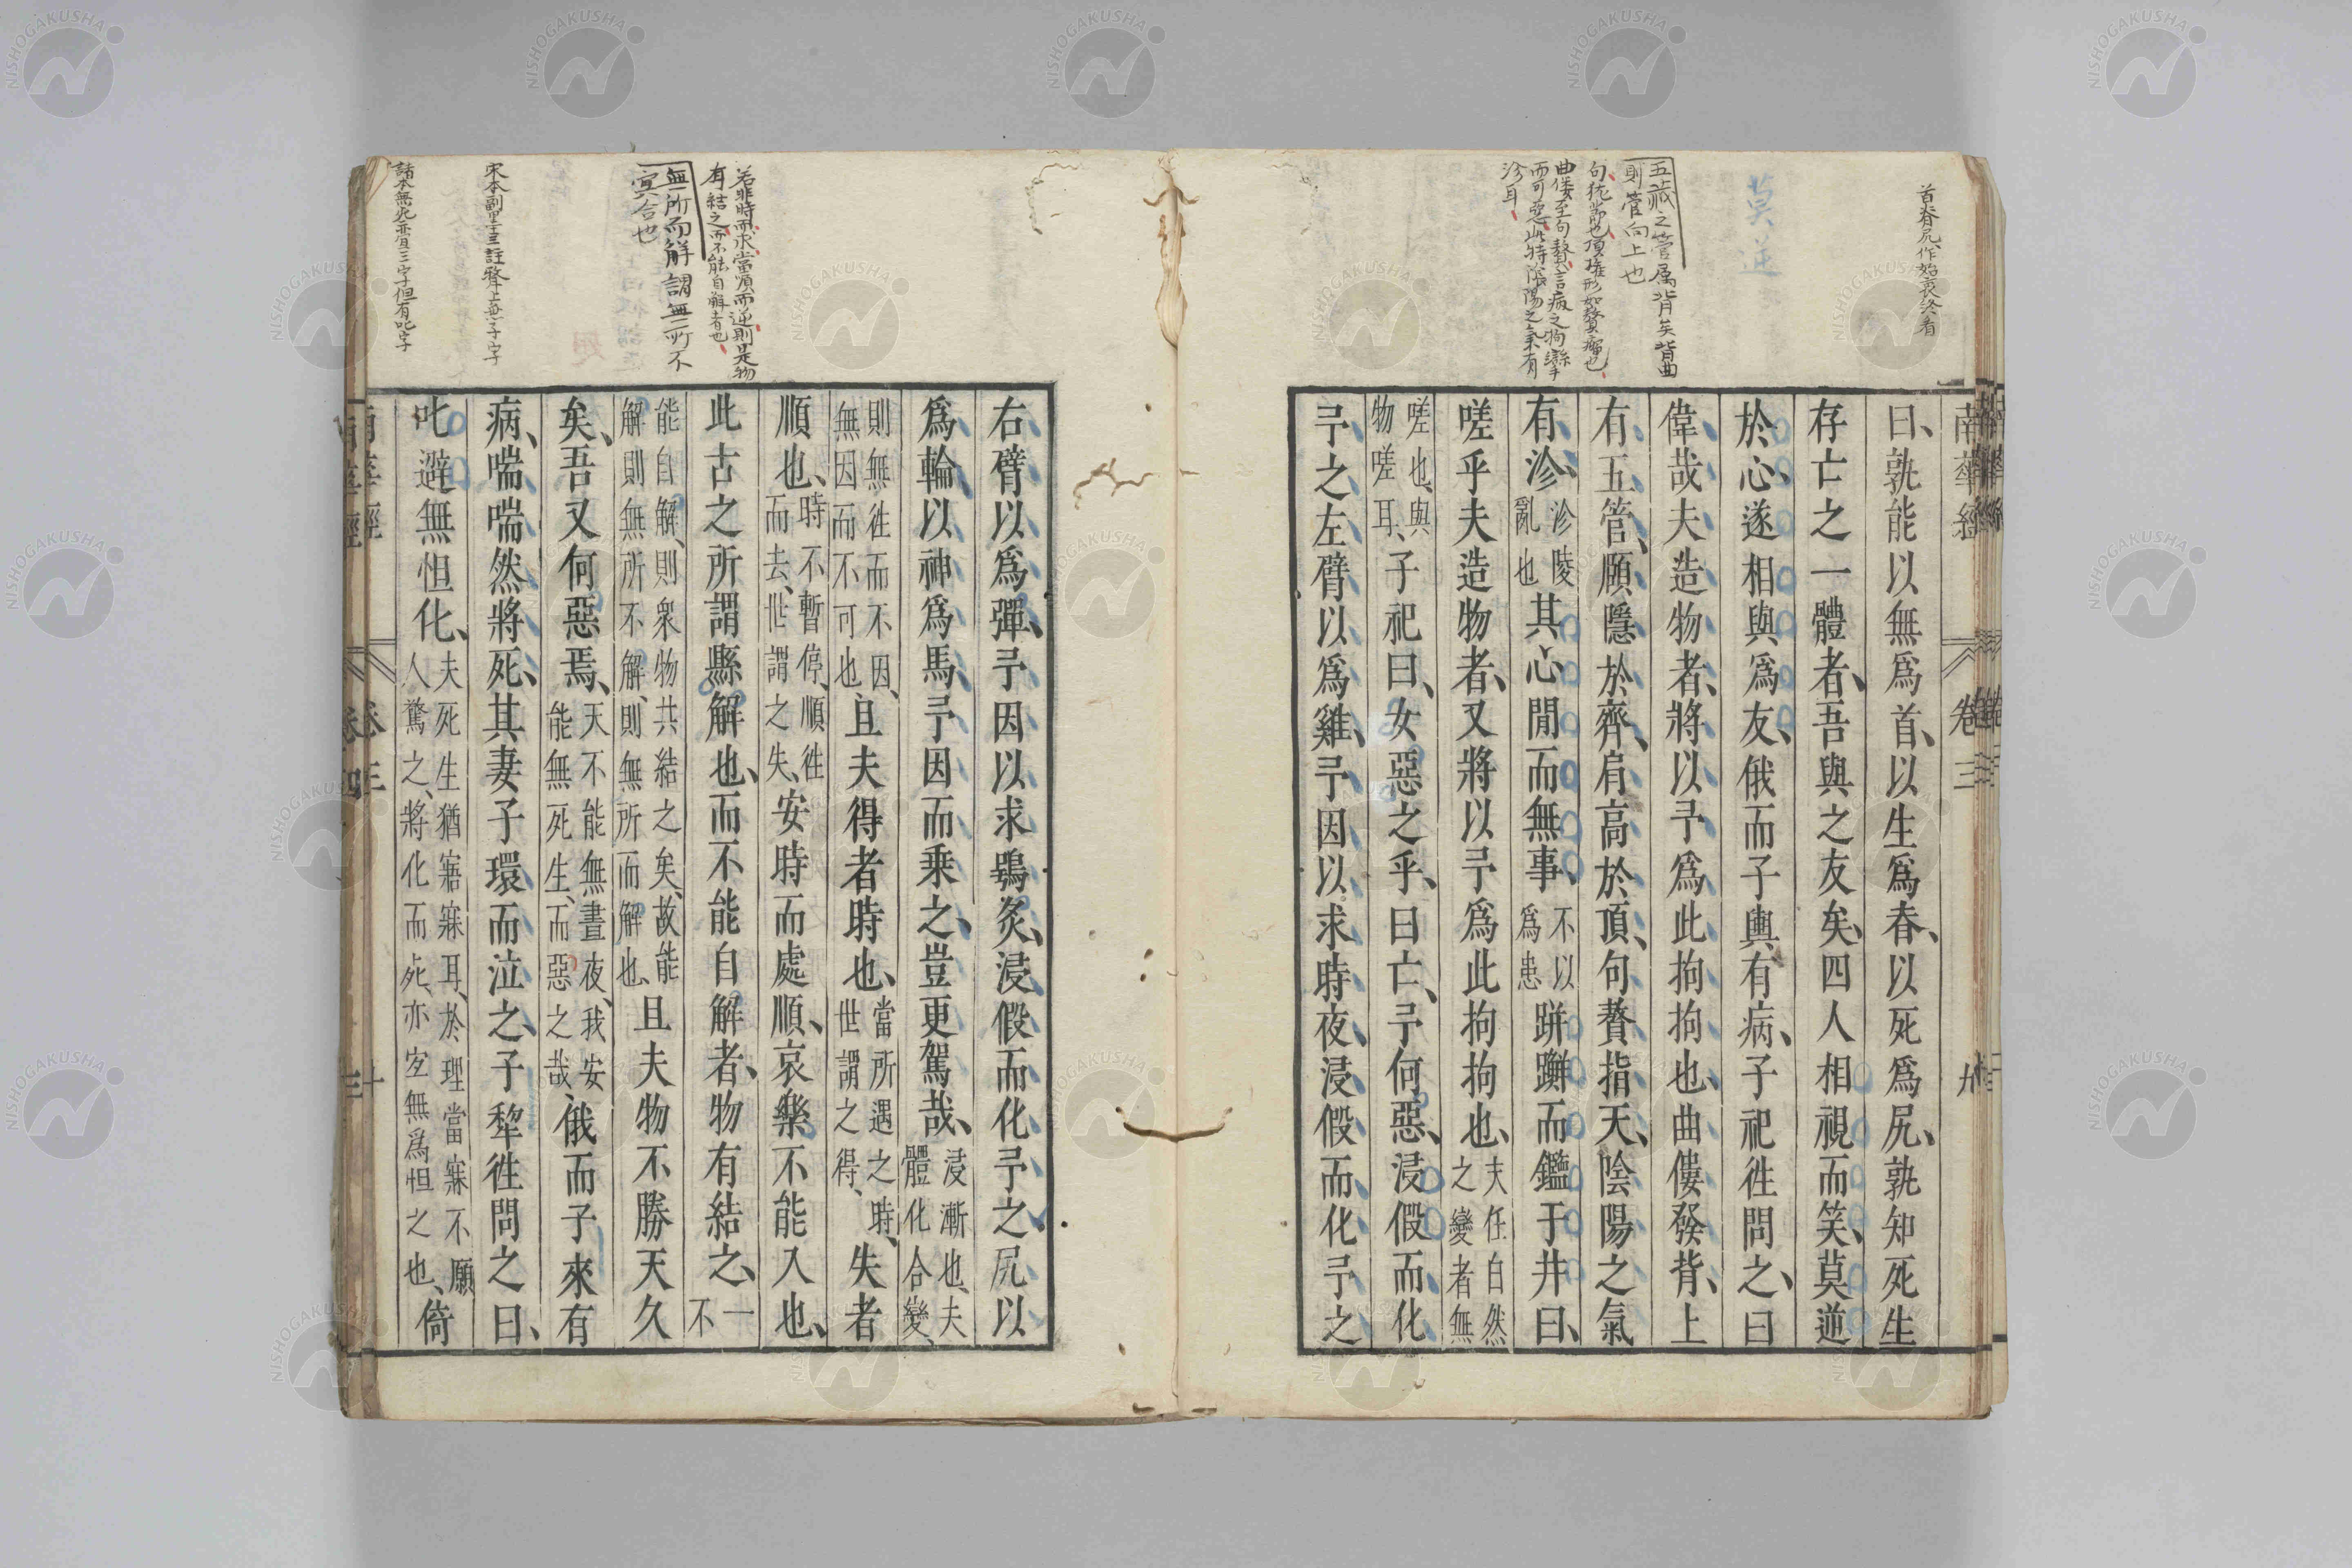 首脊尻作始衷終看
莫逆
五藏之管属背矣背曲
則管向上也
句贅項椎形如贅瘤也
曲僂至句贅言病之拘攣
而可惡此特陰陽之氣有
沴耳
南華經 卷三 九
曰、孰能以無爲首、以生爲春、以死爲尻、孰知死生
存亡之一體者、吾與之友矣、四人相視而笑、莫逆
於心、遂相與爲友、俄而子輿有病、子祀徃問之、曰
偉哉夫造物者、將以予爲此拘拘也、曲僂發背、上
有五管、願隱於齊、肩高於頂、句贅指天、陰陽之氣
有沴、沴陵亂也其心閒而無事、不以爲患跰𨇤而鑑于井曰、
嗟乎夫造物者、又將以予爲此拘拘也、夫任自然之變者無
嗟也、與物嗟耳、子祀曰、女惡之乎、曰亡、予何惡、浸假而化
予之左臂以爲雞、予因以求時夜、浸假而化予之
若非時而求、當順而逆則是物
有結之而不能自解者也
無所而解謂無所不
冥合也
宋本副墨主註聲上無子字
諸本無死亦宜三字但有叱字
右臂以爲彈、予因以求鴞炙、浸假而化予之尻以
爲輪、以神爲馬、予因而乘之、豈更駕哉、浸漸也、夫體化合變、
則無徃而不因、無因而不可也、且夫得者時也、當所遇之時、世謂之得、失者
順也、時不暫停、順徃而去、世謂之失、安時而處順、哀樂不能入也、
此古之所謂縣解也、而不能自解者、物有結之、一不
能自解、則衆物共結之矣、故能解則無所不解、則無所而解也、且夫物不勝天久
矣、吾又何惡焉、天不能無晝夜、我安能無死生、而惡之哉、俄而子來有
病、喘喘然將死、其妻子環而泣之、子犂徃問之曰、
叱避無怛化、夫死生猶寤寐耳、於理當寐不願人驚之、將化而死、亦宜無爲怛之也、倚
南華經 卷三